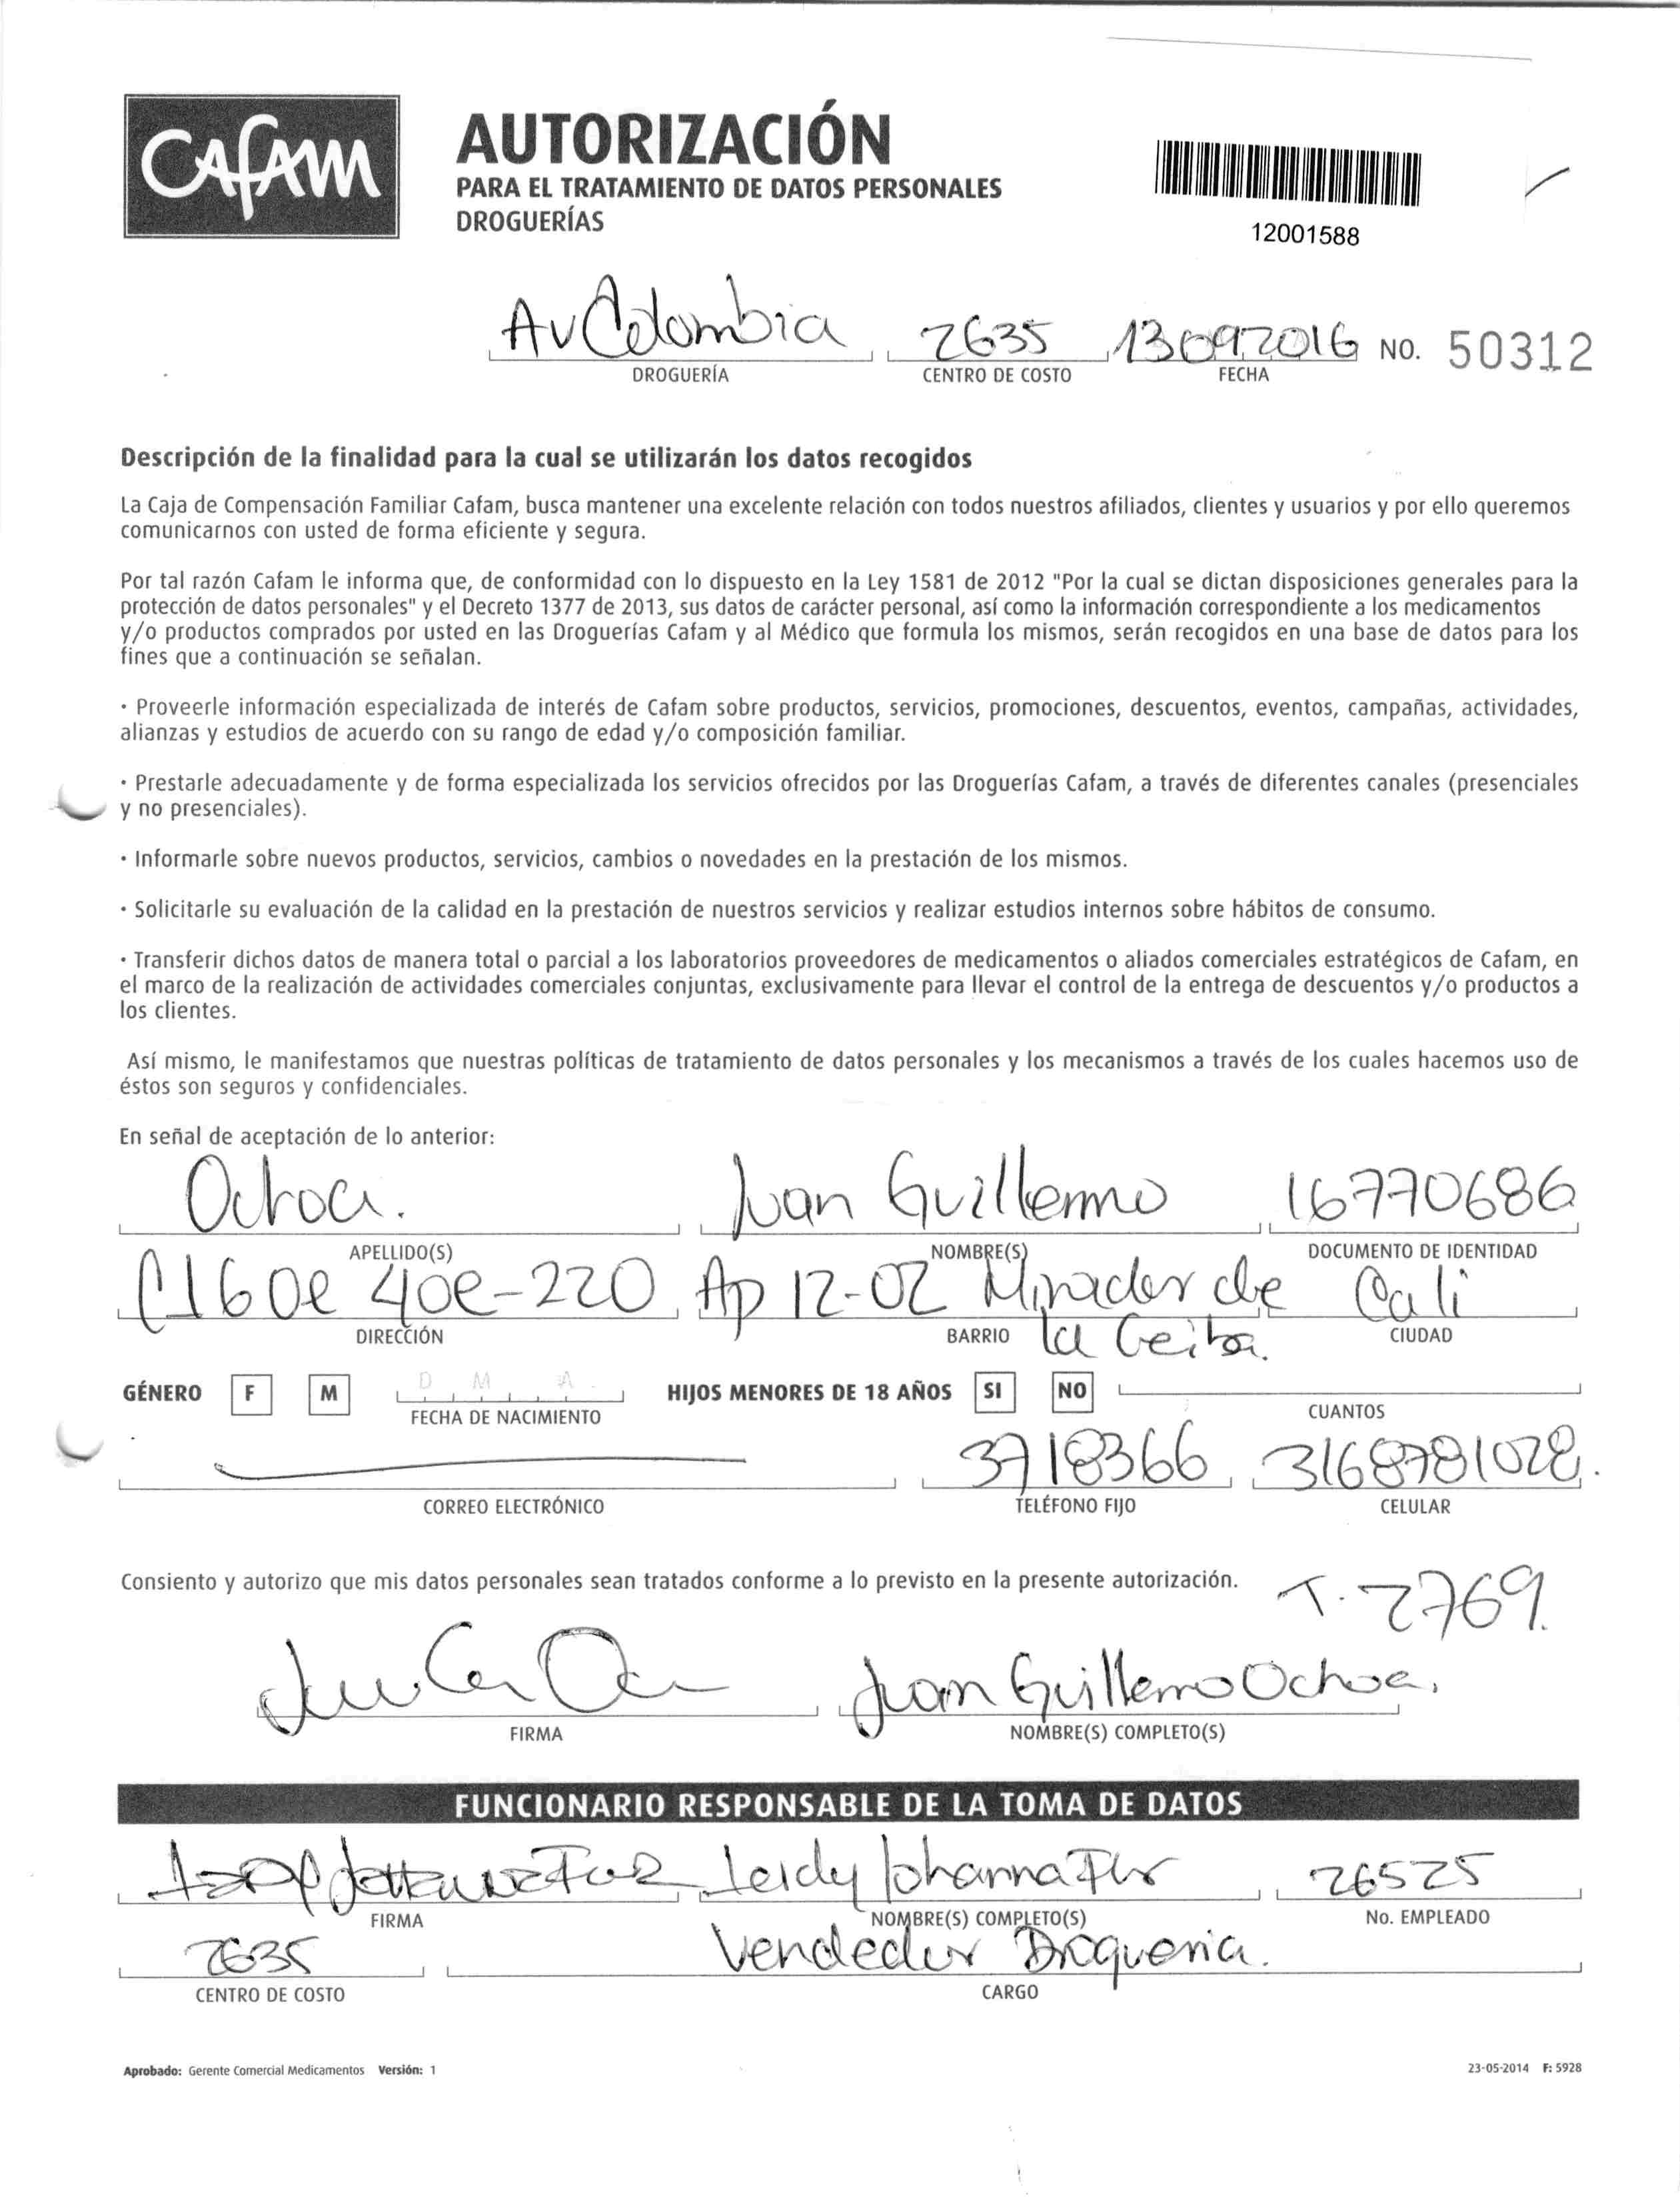 Cafam
AUTORIZACIÓN
PARA EL TRATAMIENTO DE DATOS PERSONALES
DROGUERÍAS
12001588
Av Colombia 2635 13092016 NO. 50312
DROGUERÍA CENTRO DE COSTO FECHA
Descripción de la finalidad para la cual se utilizarán los datos recogidos
La Caja de Compensación Familiar Cafam, busca mantener una excelente relación con todos nuestros afiliados, clientes y usuarios y por ello queremos
comunicarnos con usted de forma eficiente y segura.
Por tal razón Cafam le informa que, de conformidad con lo dispuesto en la Ley 1581 de 2012 "Por la cual se dictan disposiciones generales para la
protección de datos personales" y el Decreto 1377 de 2013, sus datos de carácter personal, así como la información correspondiente a los medicamentos
y/o productos comprados por usted en las Droguerías Cafam y al Médico que formula los mismos, serán recogidos en una base de datos para los
fines que a continuación se señalan.
· Proveerle información especializada de interés de Cafam sobre productos, servicios, promociones, descuentos, eventos, campañas, actividades,
alianzas y estudios de acuerdo con su rango de edad y/o composición familiar.
· Prestarle adecuadamente y de forma especializada los servicios ofrecidos por las Droguerías Cafam, a través de diferentes canales (presenciales
y no presenciales).
· Informarle sobre nuevos productos, servicios, cambios o novedades en la prestación de los mismos.
· Solicitarle su evaluación de la calidad en la prestación de nuestros servicios y realizar estudios internos sobre hábitos de consumo.
· Transferir dichos datos de manera total o parcial a los laboratorios proveedores de medicamentos o aliados comerciales estratégicos de Cafam, en
el marco de la realización de actividades comerciales conjuntas, exclusivamente para llevar el control de la entrega de descuentos y/o productos a
los clientes.
Así mismo, le manifestamos que nuestras políticas de tratamiento de datos personales y los mecanismos a través de los cuales hacemos uso de
éstos son seguros y confidenciales.
En señal de aceptación de lo anterior:
Ochoa. Juan Guillermo 16770686
APELLIDO(S) NOMBRE(S) DOCUMENTO DE IDENTIDAD
Cl 6 Oe 40e-220 Ap 12-02 Mirador de Cali
DIRECCIÓN BARRIO la Ceiba. CIUDAD
GÉNERO F M D M A HIJOS MENORES DE 18 AÑOS SI NO
FECHA DE NACIMIENTO CUANTOS
3718366 3168781028.
CORREO ELECTRÓNICO TELÉFONO FIJO CELULAR
Consiento y autorizo que mis datos personales sean tratados conforme a lo previsto en la presente autorización.
T. 2769.
Juan Guillermo Ochoa.
FIRMA NOMBRE(S) COMPLETO(S)
FUNCIONARIO RESPONSABLE DE LA TOMA DE DATOS
Leidy Johanna 26525
FIRMA NOMBRE(S) COMPLETO(S) No. EMPLEADO
2635 Vendedor Drogueria.
CENTRO DE COSTO CARGO
Aprobado: Gerente Comercial Medicamentos Versión: 1 23-05-2014 F: 5928